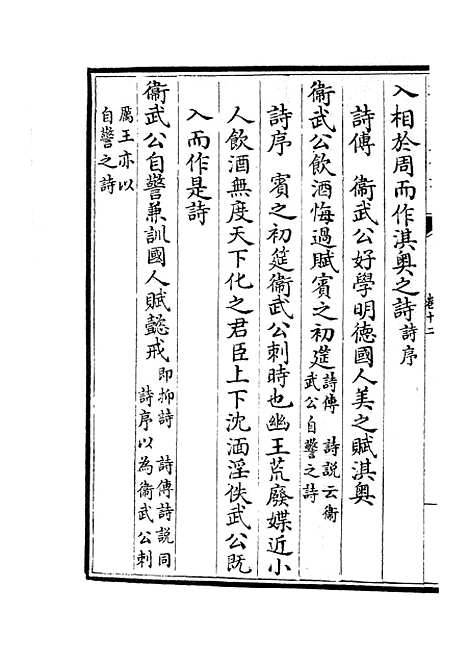 入相於周而作淇奧之詩詩序
詩傳　衞武公好學明德國人美之賦淇奧
衞武公飲酒悔過賦賓之初筵詩傳　詩說云衞武公自警之詩
詩序　賓之初筵衞武公刺時也幽王荒廢媟近小
人飲酒無度天下化之君臣上下沈湎淫佚武公既
入而作是詩
衞武公自警兼訓國人賦懿戒即抑詩　詩傳詩說同詩序以為衞武公刺
厲王亦以自警之詩
卷十二